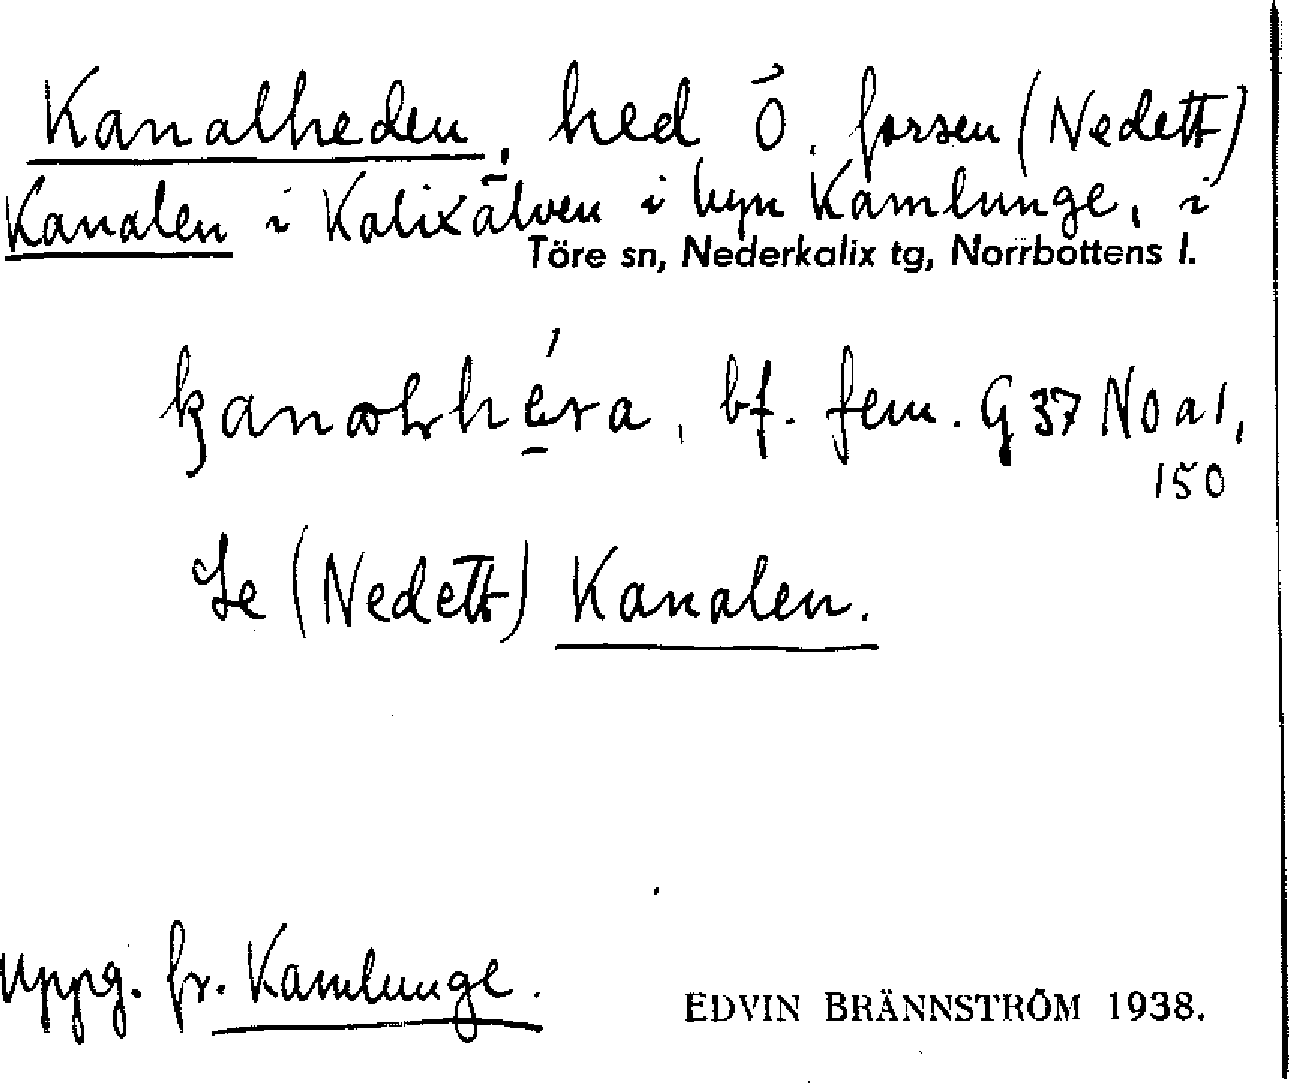 Kanalheden, hed Ö. forsen (Nedett)
Kanalen i Kalixälven i byn Kamlunge, i
Töre sn, Nederkalix tg, Norrbottens l.
bf. fem. G 37 No a 1,
150
Se (Nedett) Kanalen.
Uppg. fr. Kamlunge.
EDVIN BRÄNNSTRÖM 1938.